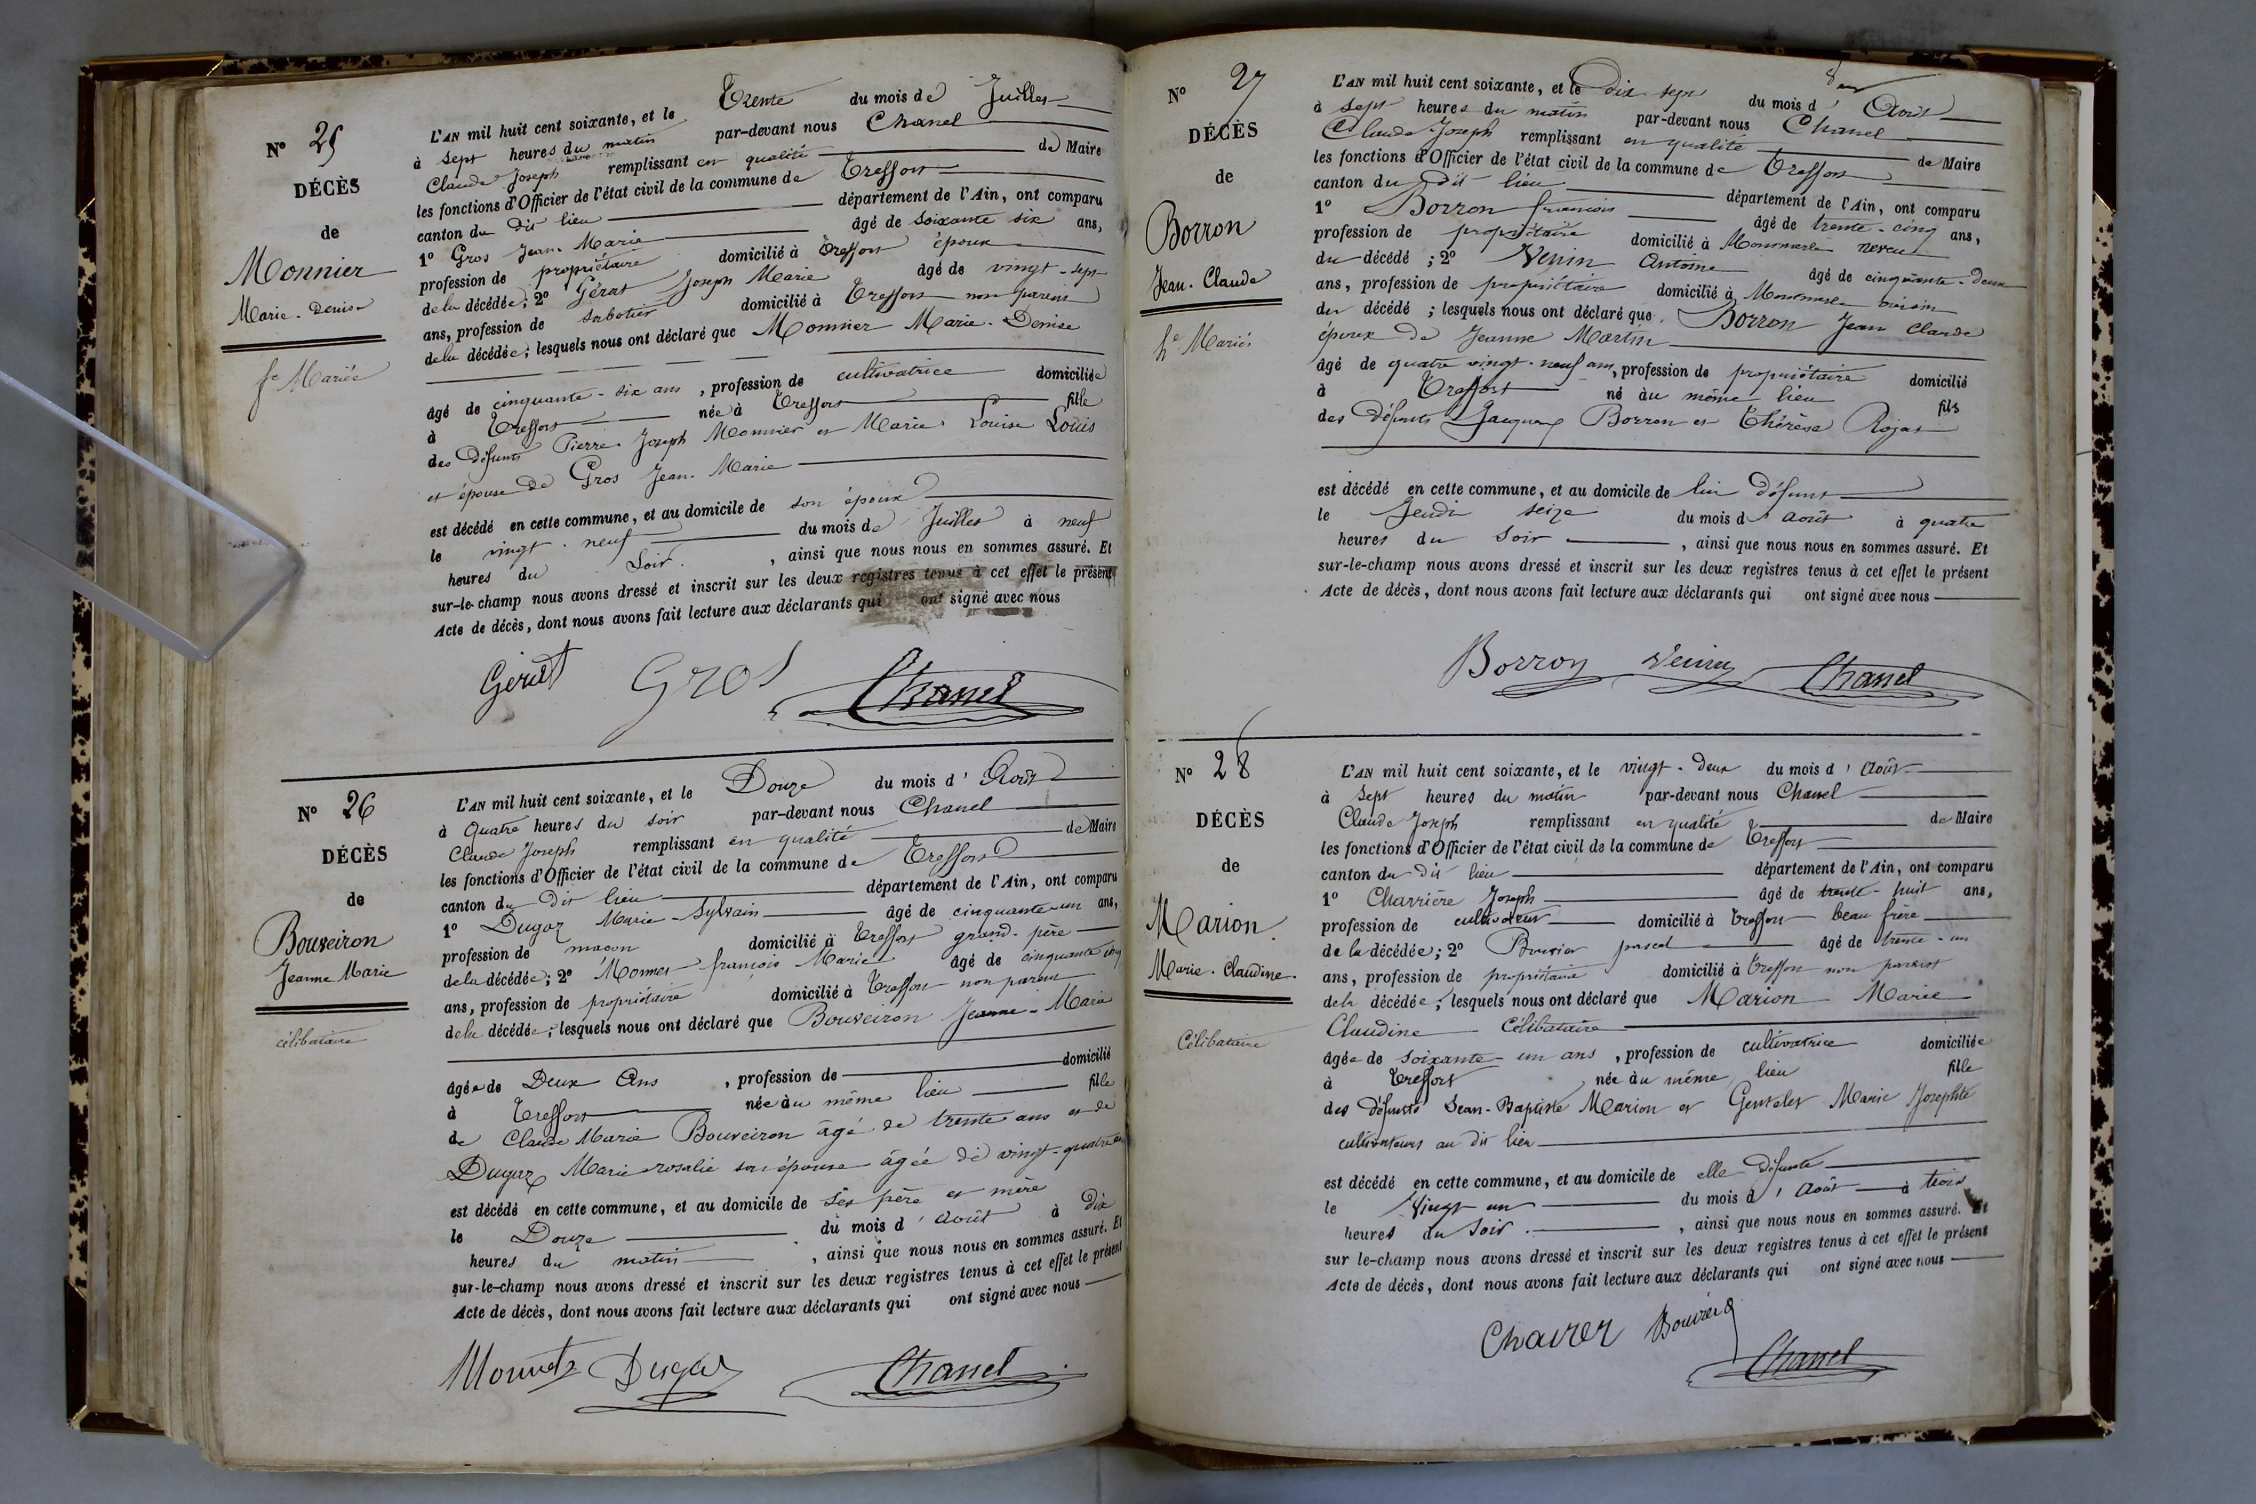 N° 25
DÉCÈS
de
Monnier
Marie-Denise
fe Mariée
L'AN mil huit cent soixante, et le Trente du mois de Juillet
à sept heures du matin par-devant nous Chanel
Claude Joseph remplissant en qualité de Maire
les fonctions d'Officier de l'état civil de la commune de Treffort
canton du dit lieu département de l'Ain, ont comparu
1° Gros Jean-Marie âgé de soixante six ans,
profession de propriétaire domicilié à Treffort époux
de la décédée; 2° Gérat Joseph Marie âgé de vingt-sept
ans, profession de sabotier domicilié à Treffort non parent
de la décédée; lesquels nous ont déclaré que Monnier Marie-Denise
âgé de cinquante-six ans, profession de cultivatrice domiciliée
à Treffort née à Treffort fille
des défunts Pierre Joseph Monnier et Marie Louise Louis
et épouse de Gros Jean-Marie
est décédé en cette commune, et au domicile de son époux
le vingt-neuf du mois de Juillet à neuf
heures du soir, ainsi que nous nous en sommes assuré. Et
sur-le-champ nous avons dressé et inscrit sur les deux registres tenus à cet effet le présent
Acte de décès, dont nous avons fait lecture aux déclarants qui ont signé avec nous
Gérat Gros Chanel
N° 26
DÉCÈS
de
Bouveiron
Jeanne Marie
célibataire
L'AN mil huit cent soixante, et le Douze du mois d'Août
à Quatre heures du soir par-devant nous Chanel
Claude Joseph remplissant en qualité de Maire
les fonctions d'Officier de l'état civil de la commune de Treffort
canton du dit lieu département de l'Ain, ont comparu
1° Dugaz Marie-Sylvain âgé de cinquante-un ans,
profession de maçon domicilié à Treffort grand-père
de la décédée; 2° Monnet françois Marie âgé de cinquante cinq
ans, profession de propriétaire domicilié à Treffort non parent
de la décédée; lesquels nous ont déclaré que Bouveiron Jeanne-Marie
âgée de Deux Ans, profession de domicilié
à Treffort née au même lieu fille
de Claude Marie Bouveiron âgé de trente ans et de
Dugaz Marie rosalie son épouse âgée de vingt-quatre ans
est décédé en cette commune, et au domicile de ses père et mère
le Douze du mois d'août à dix
heures du matin, ainsi que nous nous en sommes assuré. Et
sur-le-champ nous avons dressé et inscrit sur les deux registres tenus à cet effet le présent
Acte de décès, dont nous avons fait lecture aux déclarants qui ont signé avec nous
Monnet Dugaz Chanel
N° 27
DÉCÈS
de
Borron
Jean-Claude
he Marié
L'AN mil huit cent soixante, et le Dix sept du mois d'Août
à sept heures du matin par-devant nous Chanel
Claude Joseph remplissant en qualité de Maire
les fonctions d'Officier de l'état civil de la commune de Treffort
canton du dit lieu département de l'Ain, ont comparu
1° Borron françois âgé de trente-cinq ans,
profession de propriétaire domicilié à Montmerle neveu
du décédé; 2° Venin Antoine âgé de cinquante-deux
ans, profession de propriétaire domicilié à Montmerle voisin
du décédé; lesquels nous ont déclaré que Borron Jean Claude
époux de Jeanne Martin
âgé de quatre vingt-neuf ans, profession de propriétaire domicilié
à Treffort né au même lieu fils
des défunts Jacques Borron et Thérèse Rojat
est décédé en cette commune, et au domicile de lui défunt
le Jeudi seize du mois d'août à quatre
heures du soir, ainsi que nous nous en sommes assuré. Et
sur-le-champ nous avons dressé et inscrit sur les deux registres tenus à cet effet le présent
Acte de décès, dont nous avons fait lecture aux déclarants qui ont signé avec nous
Borron Venin Chanel
N° 28
DÉCÈS
de
Marion
Marie-Claudine
Célibataire
L'AN mil huit cent soixante, et le vingt-deux du mois d'août
à sept heures du matin par-devant nous Chanel
Claude Joseph remplissant en qualité de Maire
les fonctions d'Officier de l'état civil de la commune de Treffort
canton du dit lieu département de l'Ain, ont comparu
1° Charrière Joseph âgé de trente-huit ans,
profession de cultivateur domicilié à Treffort beau frère
de la décédée; 2° Bouvier pascal âgé de trente-un
ans, profession de propriétaire domicilié à Treffort non parent
de la décédée; lesquels nous ont déclaré que Marion Marie
Claudine Célibataire
âgée de soixante-un ans, profession de cultivatrice domiciliée
à Treffort née au même lieu fille
des défunts Jean-Baptiste Marion et Marie Josephte
cultivateurs au dit lieu
est décédé en cette commune, et au domicile de elle défunte
le Vingt un du mois d'août à trois
heures du soir, ainsi que nous nous en sommes assuré. Et
sur le-champ nous avons dressé et inscrit sur les deux registres tenus à cet effet le présent
Acte de décès, dont nous avons fait lecture aux déclarants qui ont signé avec nous
Bouvier
Chanel